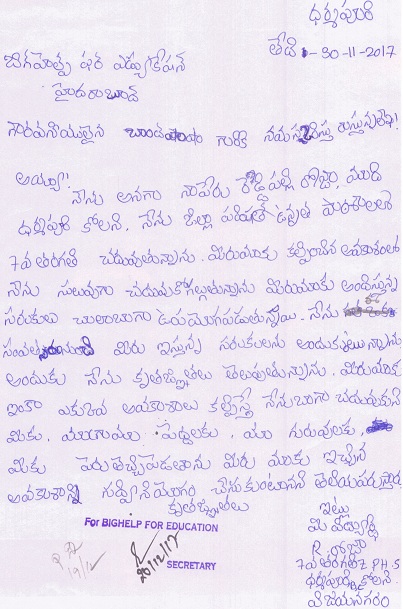 ధర్మపురి
తేది - 30-11-2017
బిగహెల్ప ఫర ఎడ్యుకేషన
హైదరాబాద్
గౌరవనీయులైన గారికి నమస్కరిస్తు
అయ్యా!
నేను అనగా నాపేరు రోజా, మాది
ధర్మపురి కోలని. నేను జిల్లా పరిషత్ ఉన్నత పాఠశాలలో
7వ తరగతి చదువుతున్నాను. మీరుమాకు కల్పించిన అవకాశంతో
నేను సులువుగా చదువుకోగల్గుతున్నాను మీరుమాకు అందిస్తున్న
సరుకులు చాలాబాగా ఉపయోగపడుతున్నాయి. నేను
సంవత్సరంనుండి మీరు ఇస్తున్న సరుకులను అందుకుంటున్నాను
అందుకు నేను కృతజ్ఞతలు తెలుపుతున్నాను. మీరుమాకు
ఇంకా ఎకువ అవకాశాలు కల్పిస్తే నేనుబాగా చదువుకుని
మీకు. మాగ్రామం. పెద్దలకు, మా గురువులకు,
మీకు పేరుతెచ్చిపెడతాను మీరు మాకు ఇచ్చిన
అవకాశాన్ని సద్వినియోగం చేసుకుంటానని తెలియపరుస్తూ
కృతజ్ఞతలు
ఇట్లు
మీ విద్యార్థి
R. రోజా
7వ తరగతి Z P H.S
ధర్మపురి కోలని.
విజయనగరం
For BIGHELP FOR EDUCATION
20/12/17
SECRETARY